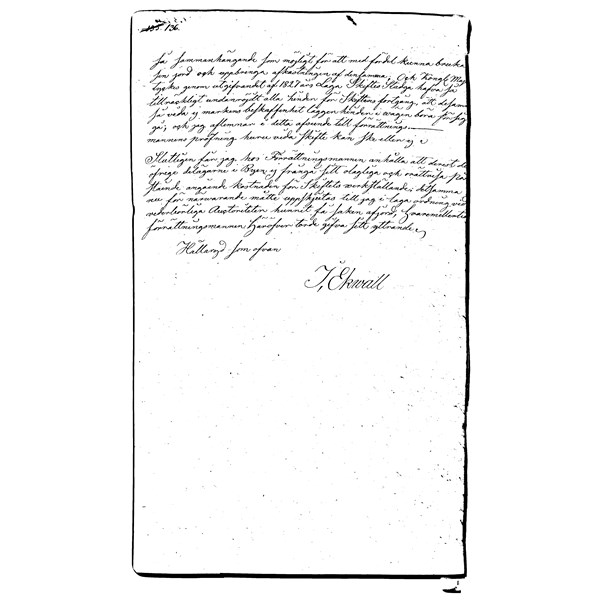 så sammanhängande som möjligt för att med fördel kunna bruka
sin jord och uppbringa afkastningen af densamma; Och Kongl. Maj
tyckes genom utgifvandet af 1827 års Laga Skiftes Stadga hafva så
tillräckligt undanröjdt alla hinder för Skiftens fortgång, att desamma
så vida ej markens beskaffenhet lägger hinder i vägen böra för sig
gå; och jag aflemnar i detta afseende till Förrättnings
mannens pröfning huru vida Skifte kan ske eller ej
Slutligen får jag hos Förrättningsmannen anhålla att derest de
öfrige delägarne i Byen ej frångå sitt olagliga och orättvisa på
stående angående kostnaden för Skiftets verkställande; detsamma
nu för närvarande måtte uppskjutas till jag i laga ordning vid
vederbörliga Auctoriteter hunnit få saken afgjord, hvaremellertid
förrättningsmannen häröfver torde gifva sitt yttrande
Hällaryd som ofvan
J, Ekwall